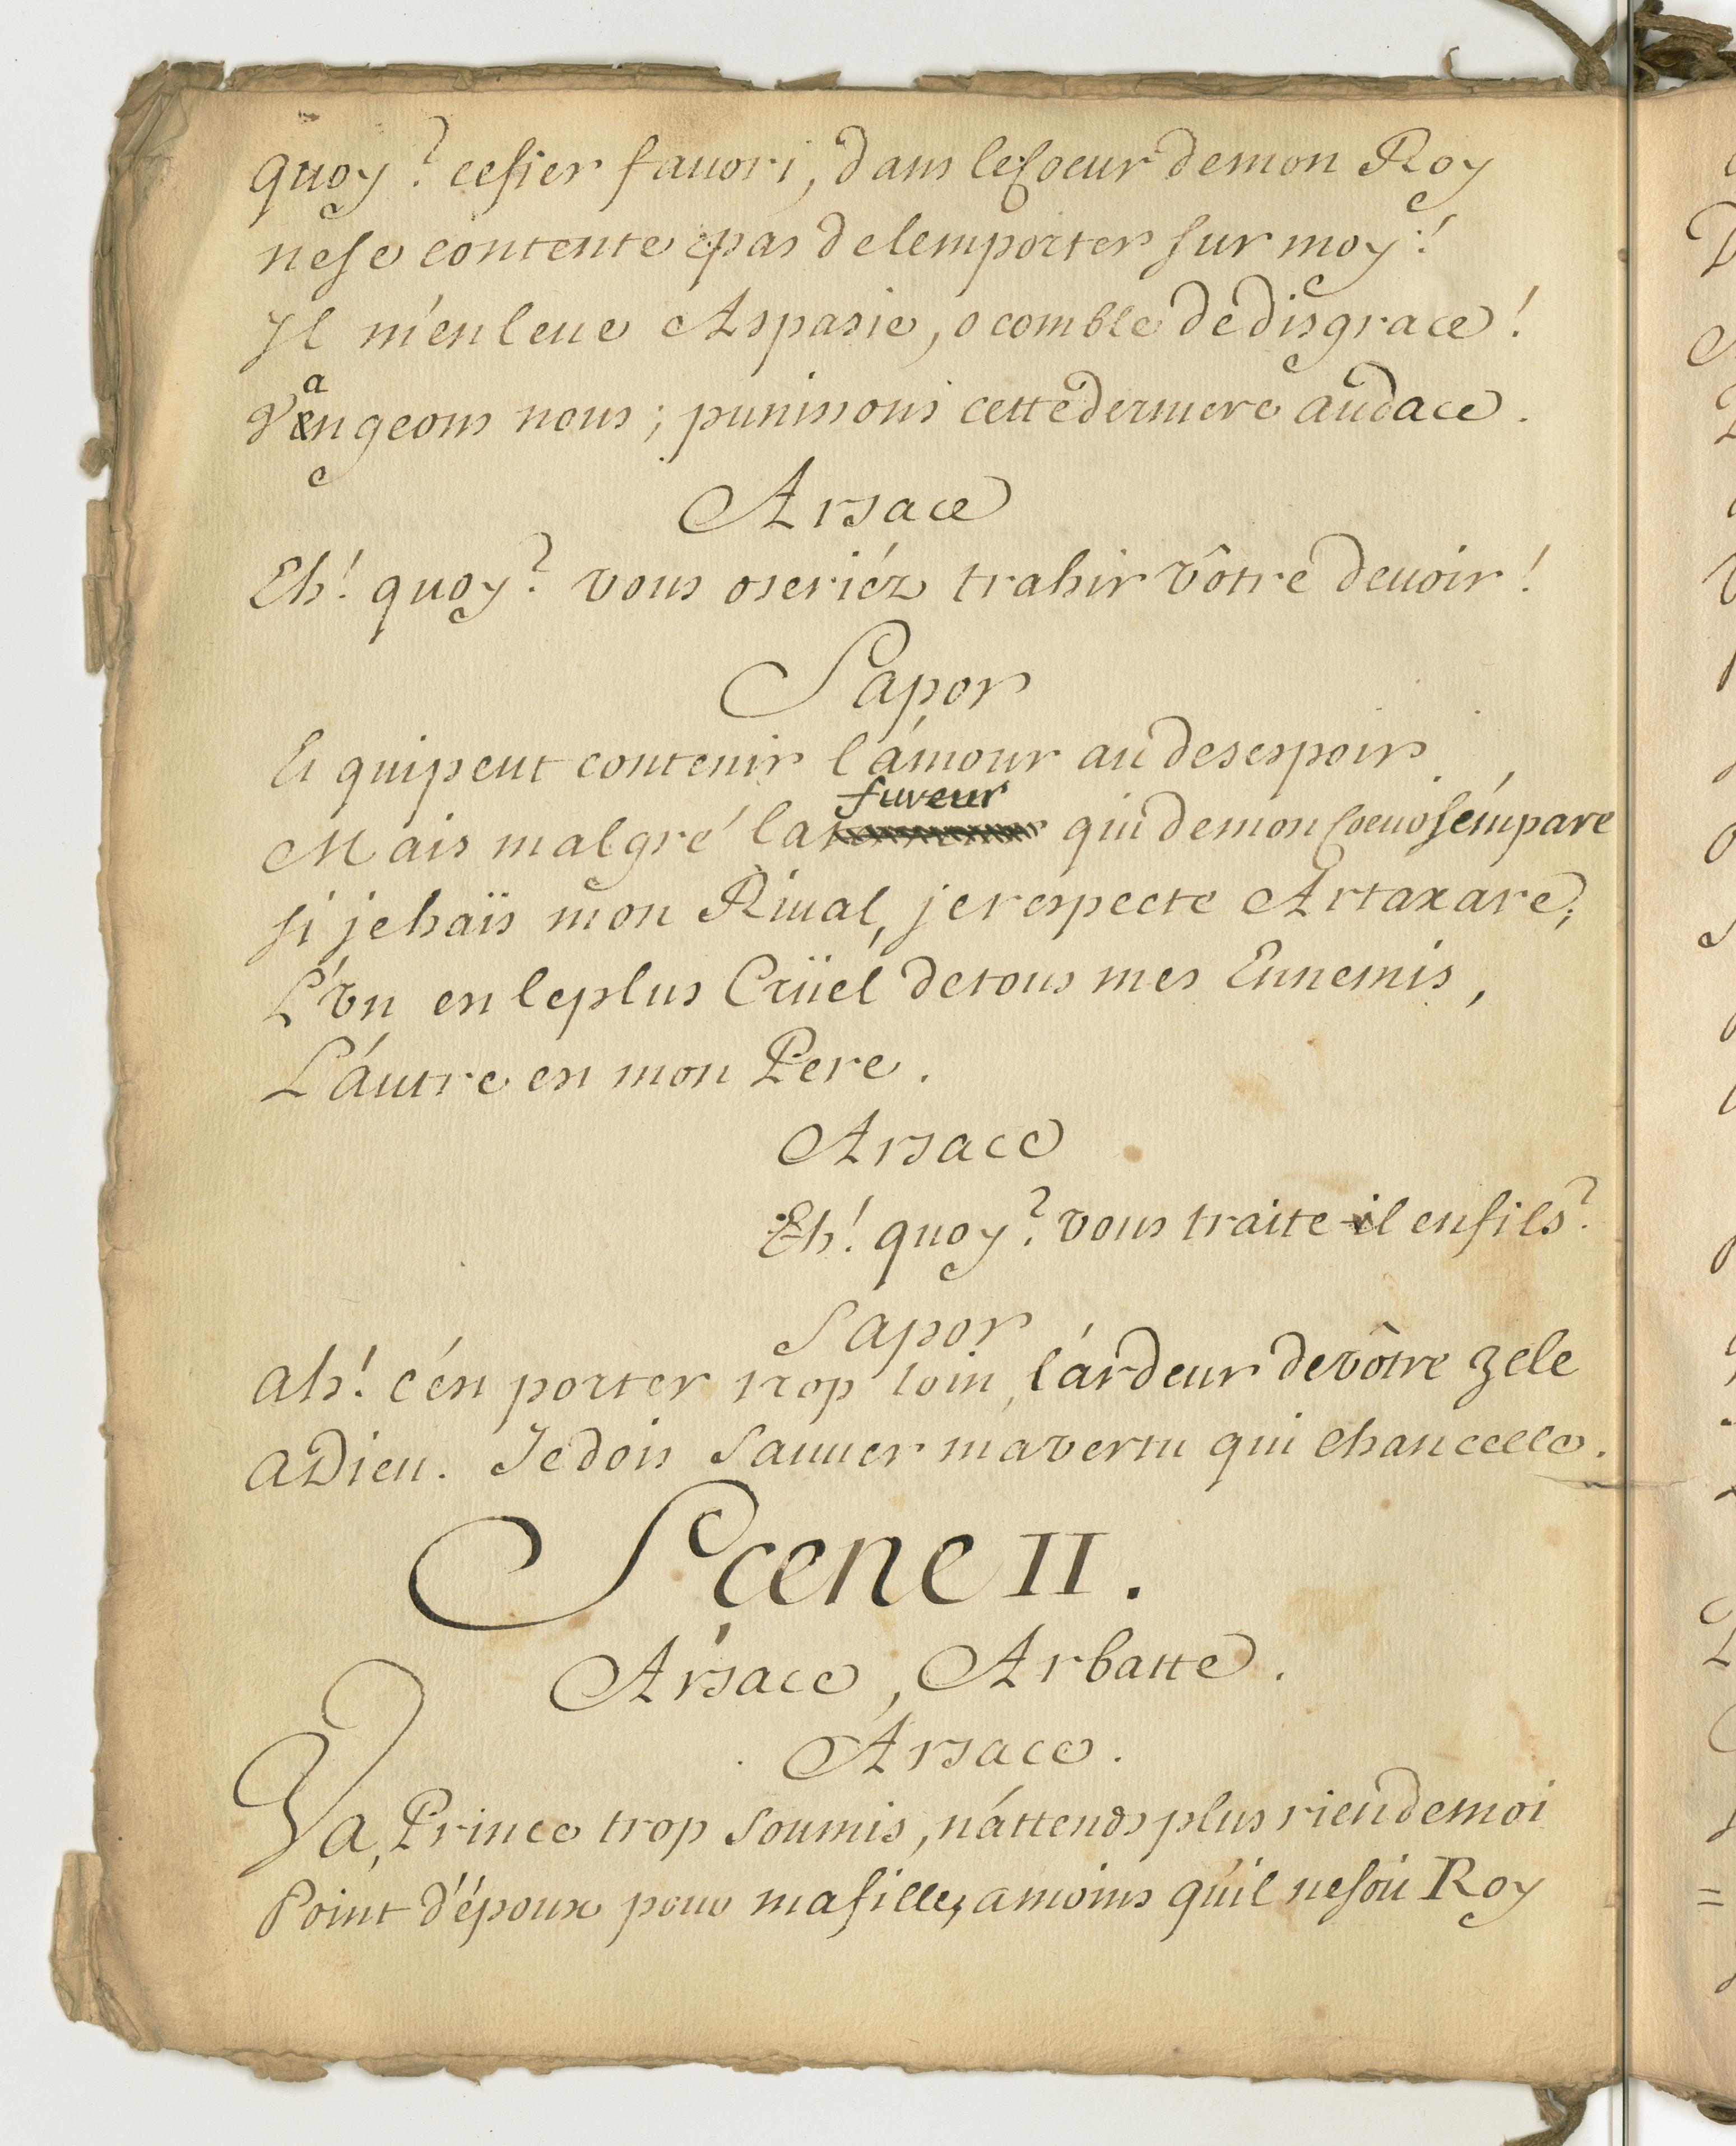 quoy? ce fier fauori, dans le Coeur de mon Roy
ne se contente pas de lemporter sur moy!
Il m'enleue Aspasie, o comble de disgrace!
Vangeons nous; punissons cette derniere audace.
Arsace
Eh! quoy? vous oseriéz trahir vôtre deuoir!
Sapor
Et qui peut contenir l'amour au desespoir
Mais malgré la fureur qui de mon Coeur s'empare
si je haïs mon Riual, je respecte Artaxare;
L'vn est le plus Crüel de tous mes Ennemis,
L'autre est mon Pere.
Arsace
Eh! quoy? vous traite-il en fils?
Sapor
ah! c'est porter trop loin, l'ardeur de vôtre zele
aDieu. Je dois sauuer ma vertu qui chancelle.
Scene II.
Arsace, Arbatte.
Arsace.
Va, Prince trop soumis, n'attends plus rien de moi
Point d'époux pour ma fille, a moins qu'il ne soit Roy